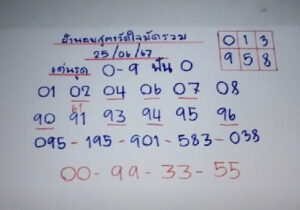 ผ่านตบสูตรวัดใจมัดรวม
25/06/67
0 1 3
9 5 8
เด่นรูด 0-9 ฟัน 0
01 02 04 06 07 08
61
90 91 93 94 95 96
095-195-901-583-038
00-99-33-55